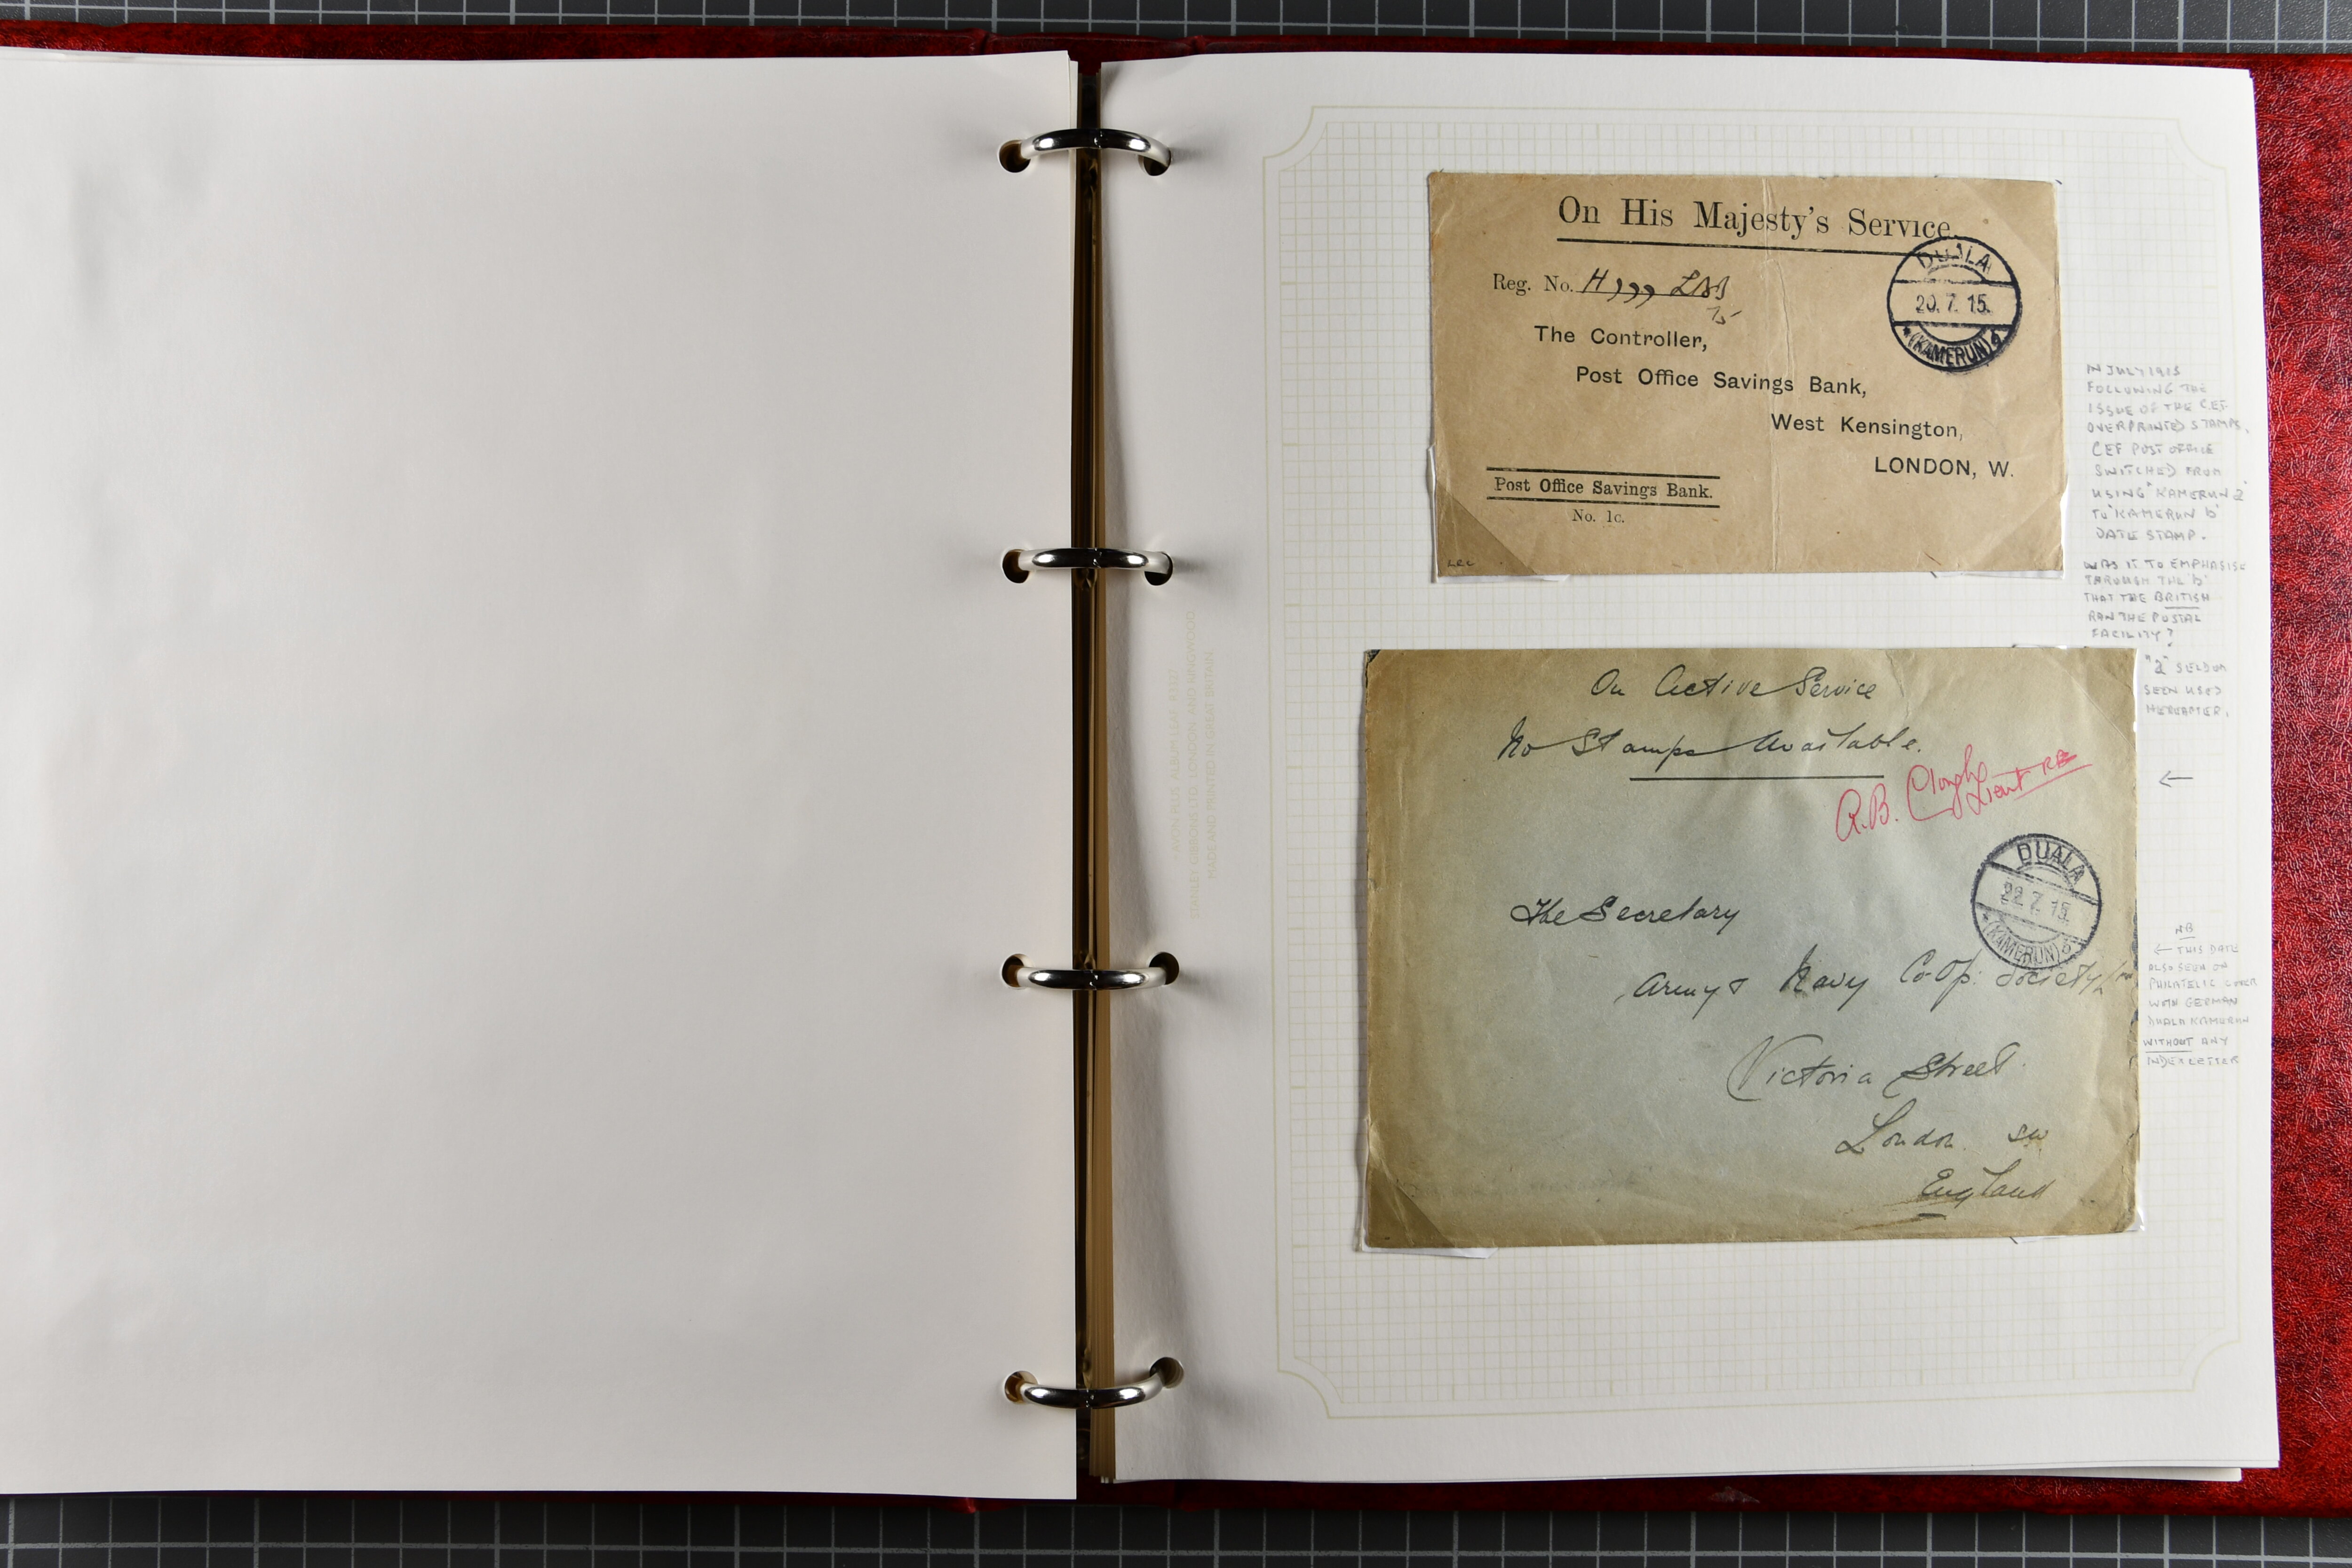 On His Majesty's Service.
DUALA
20.7.15.
*(KAMERUN)b
Reg. No.
The Controller,
Post Office Savings Bank,
West Kensington,
LONDON, W.
Post Office Savings Bank.
No. 1c.
IN JULY 1915
FOLLOWING THE
ISSUE OF THE C.E.F.
OVERPRINTED STAMPS,
CEF POST OFFICE
SWITCHED FROM
USING "KAMERUN a"
TO "KAMERUN b"
DATE STAMP.
WAS IT TO EMPHASISE
THROUGH THE 'b'
THAT THE BRITISH
RAN THE POSTAL
FACILITY?
"a" SELDOM
SEEN USED
HEREAFTER.
On Active Service
No Stamps Available.
R.B. Clough
Lieut RE
DUALA
22.7.15.
*(KAMERUN)b
The Secretary
Army & Navy Co-Op: Society
Victoria Street
London SW
England
←
NB
← THIS DATE
ALSO SEEN ON
PHILATELIC COVER
WITH GERMAN
DUALA KAMERUN
WITHOUT ANY
INDEX LETTER
STANLEY GIBBONS LTD. LONDON AND RINGWOOD
MADE AND PRINTED IN GREAT BRITAIN